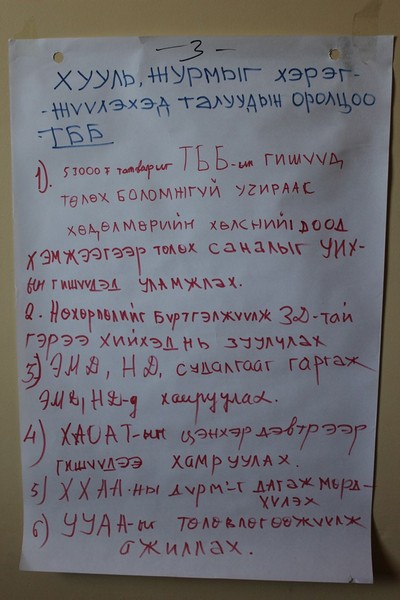 — 3 —
ХУУЛЬ, ЖУРМЫГ ХЭРЭГ-
-ЖҮҮЛЭХЭД ТАЛУУДЫН ОРОЛЦОО
ТББ
1). 53000₮ татварыг ТББ-ын ГИШҮҮД,
ТӨЛӨХ БОЛОМЖГҮЙ УЧИРААС
ХӨДӨЛМӨРИЙН ХӨЛСНИЙ ДООД
ХЭМЖЭЭГЭЭР ТӨЛӨХ САНАЛЫГ УИХ-
ын ГИШҮҮДЭД УЛАМЖЛАХ.
2. НӨХӨРЛӨЛИЙГ БҮРТГЭЛЖҮҮЛЖ ЗД-ТАЙ
ГЭРЭЭ ХИЙХЭД НЬ ЗУУЧЛАХ
3) ЭМД, НД, СУДАЛГААГ ГАРГАЖ
ЭМД, НД-д хамруулах.
4) ХАОАТ-ын ЦЭНХЭР ДЭВТРЭЭР
ГИШҮҮДЭЭ ХАМРУУЛАХ.
5) ХХАА-НЫ ДҮРМИГ ДАГАЖ МӨРД-
ҮҮЛЭХ
6) УУАА-ыг ТӨЛӨВЛӨГӨӨЖҮҮЛЖ
АЖИЛЛАХ.